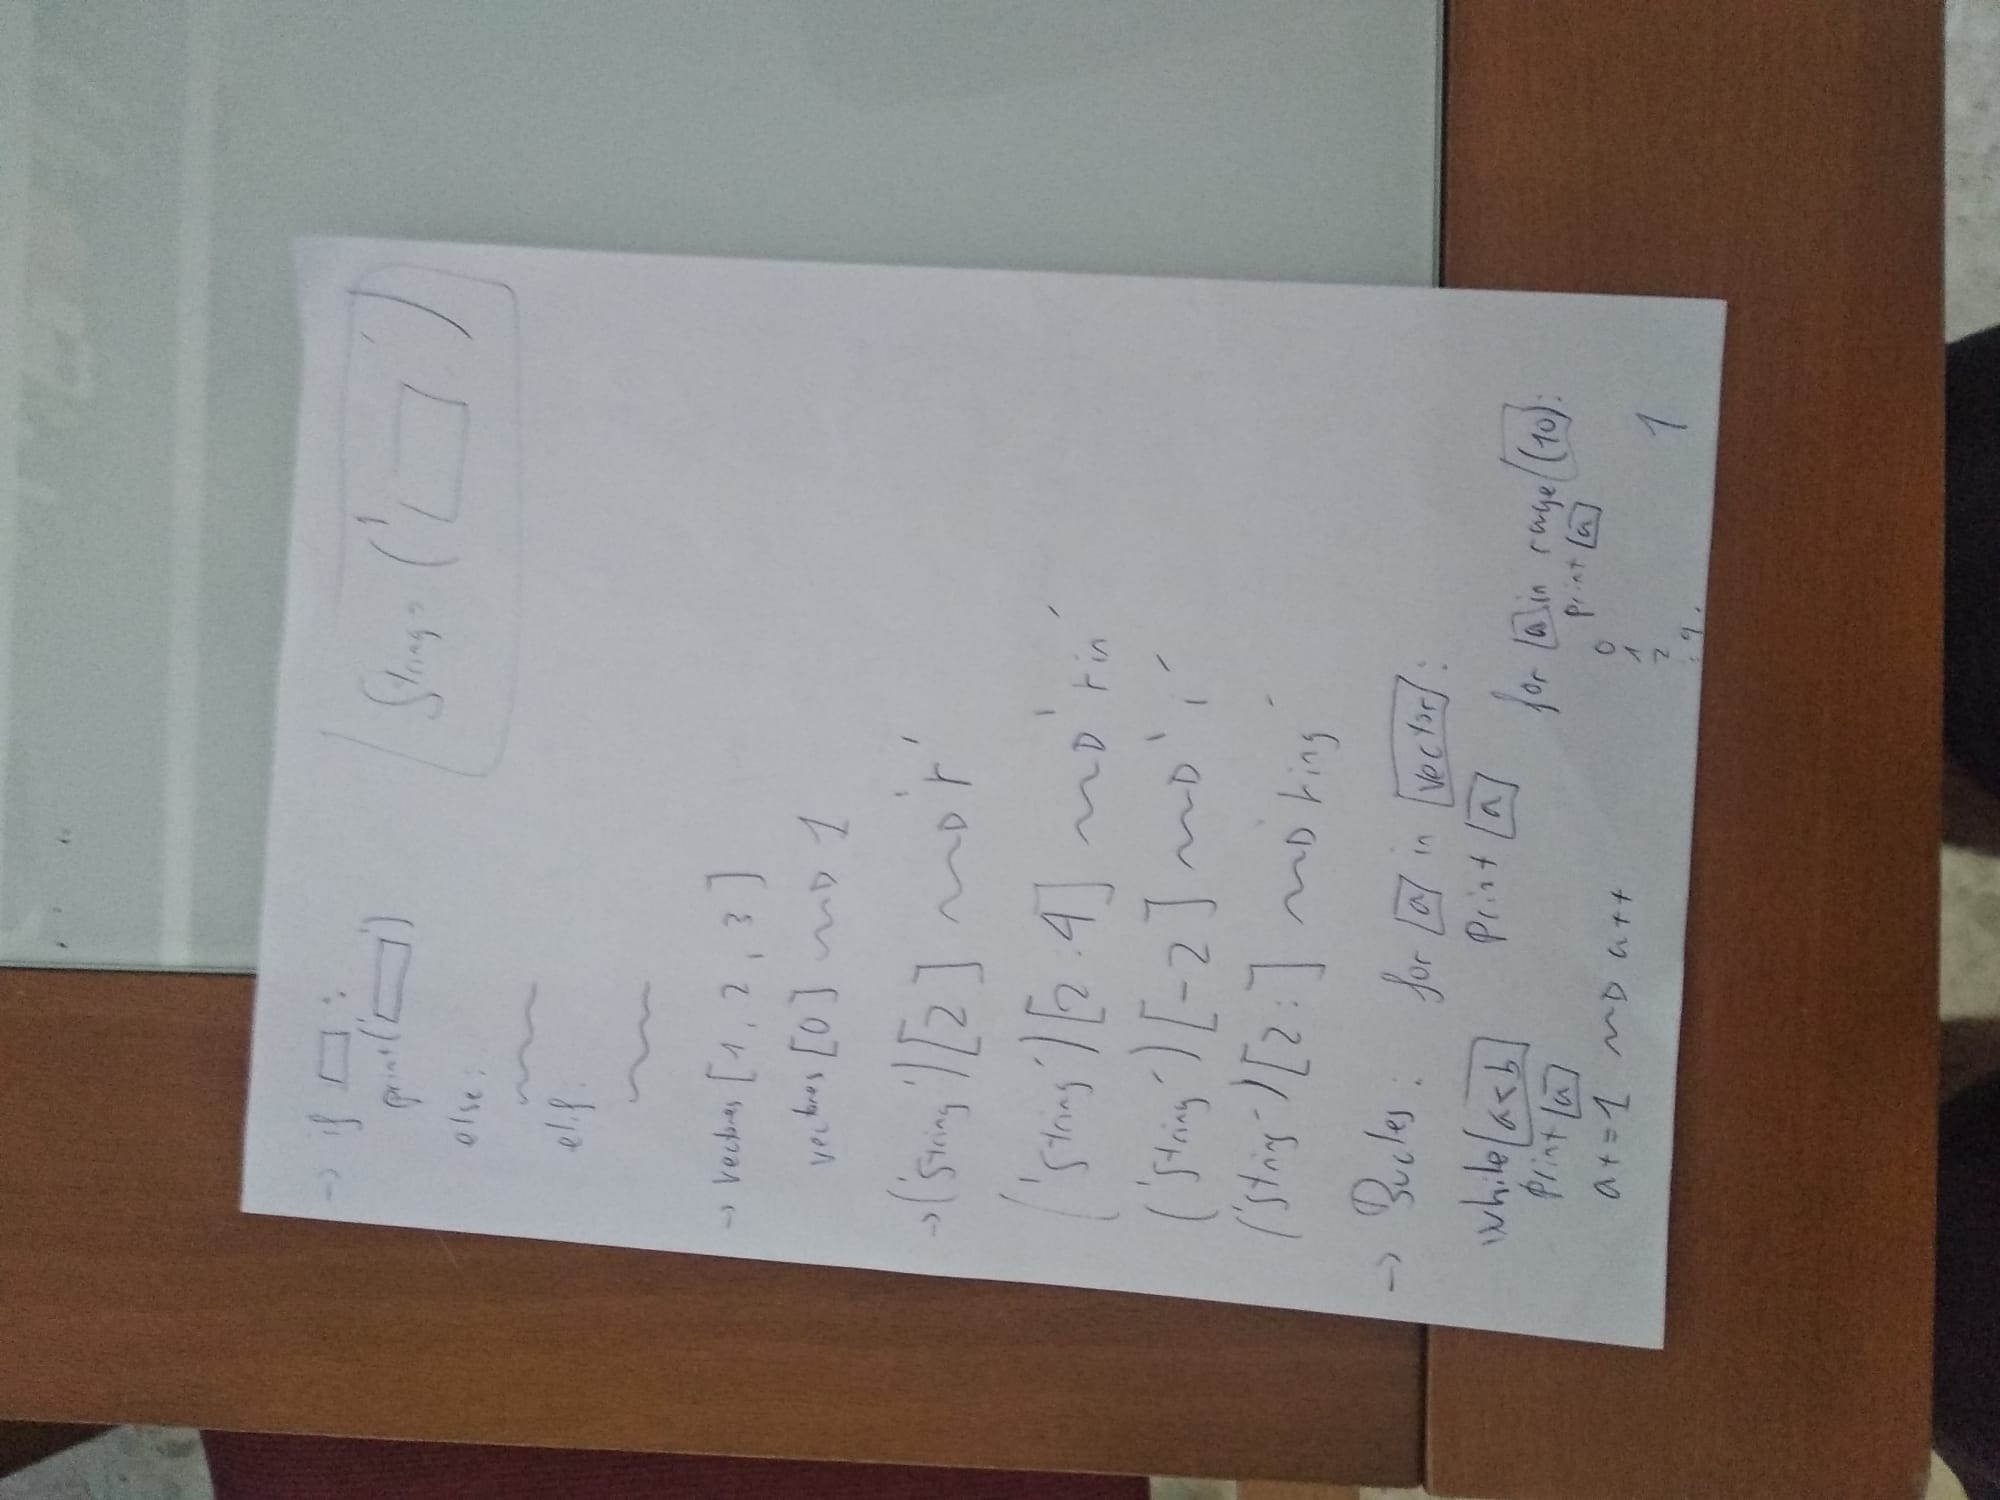 → if □:
print('□')
else:
elif:
String → ('□')
→ vectores [1, 2, 3]
vectores [0] ⇝ 1
→ ('String')[2] ⇝ 'r'
('String')[2:4] ⇝ 'rin'
('String')[-2] ⇝ 'i'
('String')[2:] ⇝ 'ring'
→ Bucles: for a in vector:
print a
while a<b
print a
a+=1 ⇝ a++
for a in range(10):
print a
0
1
2
: 9.
1